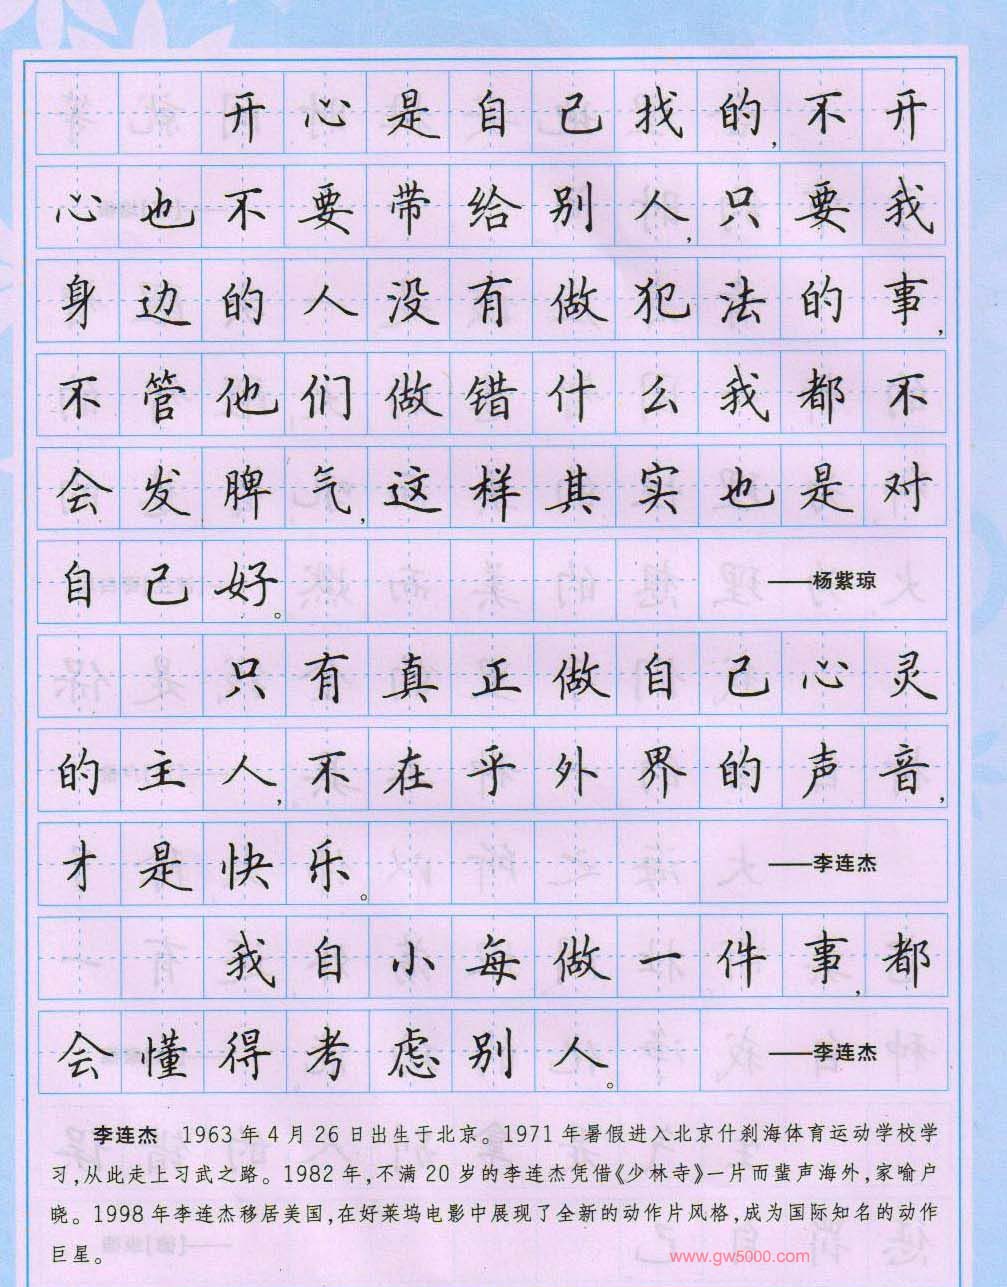 开心是自己找的,不开
心也不要带给别人,只要我
身边的人没有做犯法的事,
不管他们做错什么我都不
会发脾气,这样其实也是对
自己好。 ——杨紫琼
只有真正做自己心灵
的主人,不在乎外界的声音,
才是快乐。 ——李连杰
我自小每做一件事,都
会懂得考虑别人。 ——李连杰
李连杰 1963年4月26日出生于北京。1971年暑假进入北京什刹海体育运动学校学
习,从此走上习武之路。1982年,不满20岁的李连杰凭借《少林寺》一片而蜚声海外,家喻户
晓。1998年李连杰移居美国,在好莱坞电影中展现了全新的动作片风格,成为国际知名的动作
巨星。
www.gw5000.com